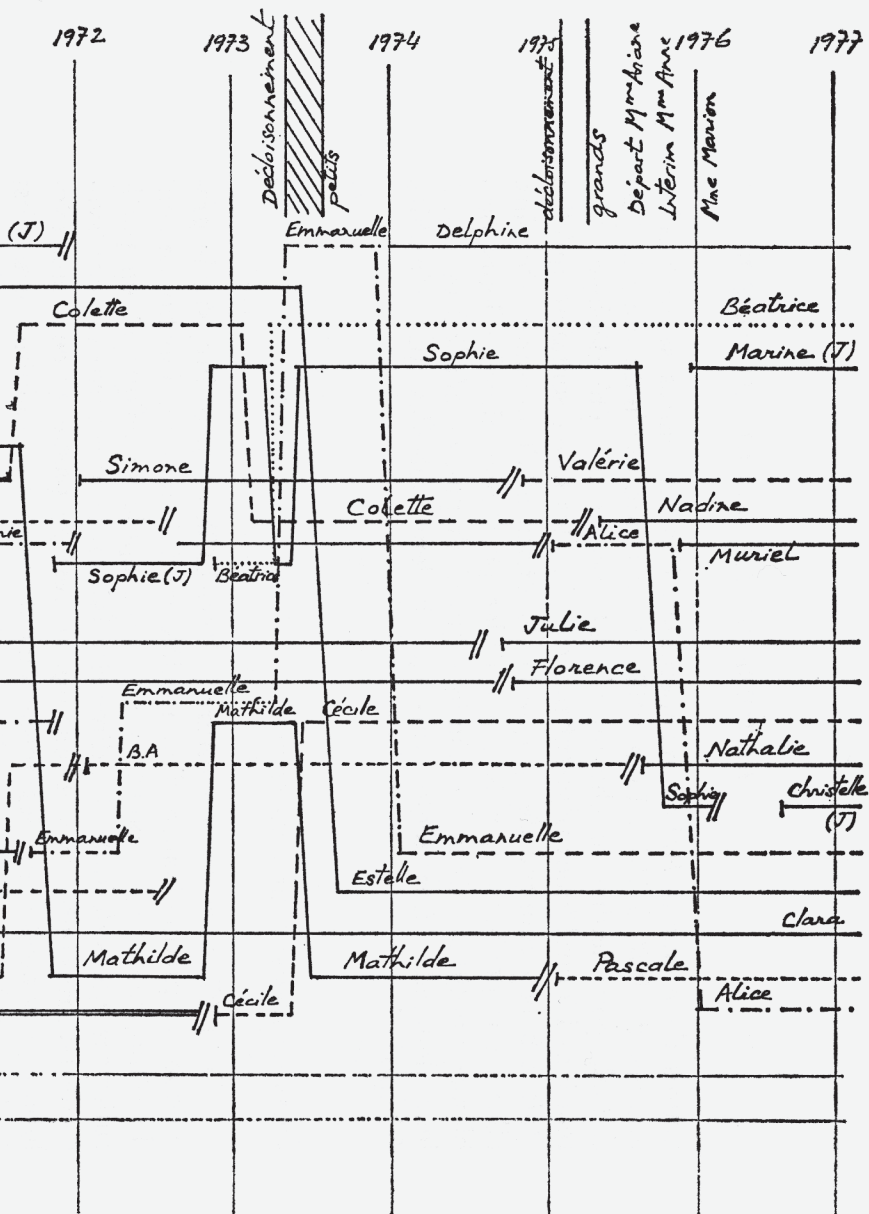 1972
1973
1974
1975
1976
1977
Décloisonnement
petits
décloisonnement
grands
Départ Mme Ariane
Intérim Mme Anne
Mme Marion
(J)
Emmanuelle
Delphine
Colette
Béatrice
Sophie
Marine (J)
Simone
Valérie
Colette
Nadine
nie
Alice
Muriel
Sophie (J)
Béatrice
Julie
Florence
Emmanuelle
Mathilde
Cécile
B.A
Nathalie
Sophie
Christelle
(J)
Emmanuelle
Emmanuelle
Estelle
Clara
Mathilde
Mathilde
Pascale
Cécile
Alice